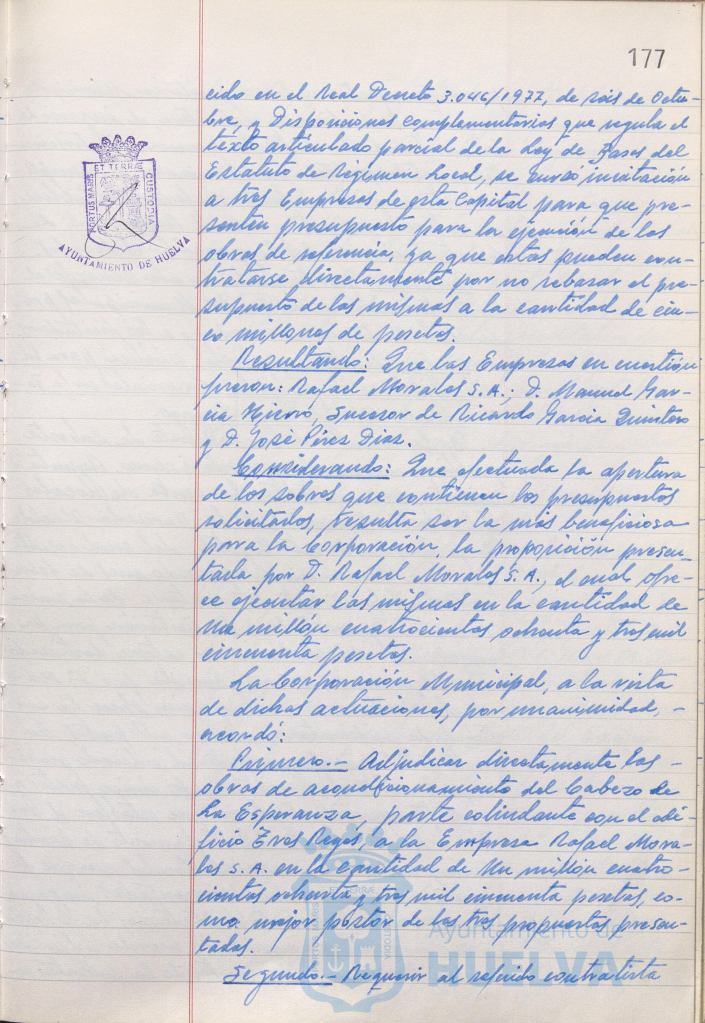 177
cido en el Real Decreto 3.046/1977, de seis de Octu-
bre, y Disposiciones complementarias que regula el
texto articulado parcial de la Ley de Bases del
Estatuto de Régimen Local, se cursó invitación
a tres Empresas de esta Capital para que pre-
senten presupuesto para la ejecución de las
obras de referencia, ya que estas pueden con-
tratarse directamente por no rebasar el pre-
supuesto de las mismas a la cantidad de cin-
co millones de pesetas.
Resultando: Que las Empresas en cuestión
fueron: Rafael Morales S.A.; D. Manuel Gar-
cia Hierro, Sucesor de Ricardo Garcia Quintero
y D. José Pérez Diaz.
Considerando: Que efectuada la apertura
de los sobres que contienen los presupuestos
solicitados, resulta ser la más beneficiosa
para la Corporación, la proposición presen-
tada por D. Rafael Morales S.A., el cual ofre-
ce ejecutar las mismas en la cantidad de
un millón cuatrocientas ochenta y tres mil
cincuenta pesetas.
La Corporación Municipal, a la vista
de dichas actuaciones, por unanimidad, -
acordó:
Primero.- Adjudicar directamente las -
obras de acondicionamiento del Cabezo de
La Esperanza, parte colindante con el edi-
ficio Tres Reyes, a la Empresa Rafael Mora-
les S.A. en la cantidad de Un millón cuatro-
cientas ochenta y tres mil cincuenta pesetas, co-
mo mejor postor de las tres propuestas presen-
tadas.
Segundo.- Requerir al referido contratista
PORTUS MARIS ET TERRÆ CUSTODIA
AYUNTAMIENTO DE HUELVA
Ayuntamiento de
HUELVA